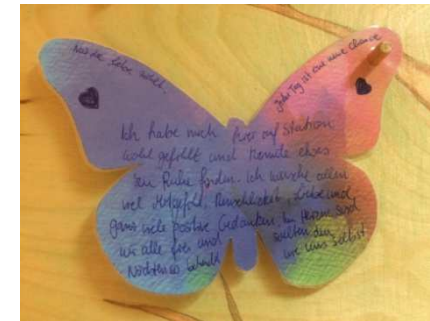 Nur die Liebe zählt.
Jeder Tag ist eine neue Chance
Ich habe mich hier auf Station
wohl gefühlt und konnte etwas
zur Ruhe finden. Ich wünsche allen
viel Mitgefühl, Menschlichkeit, Liebe und
ganz viele positive Gedanken. Im Herzen sind
wir alle frei und
wir uns selbst